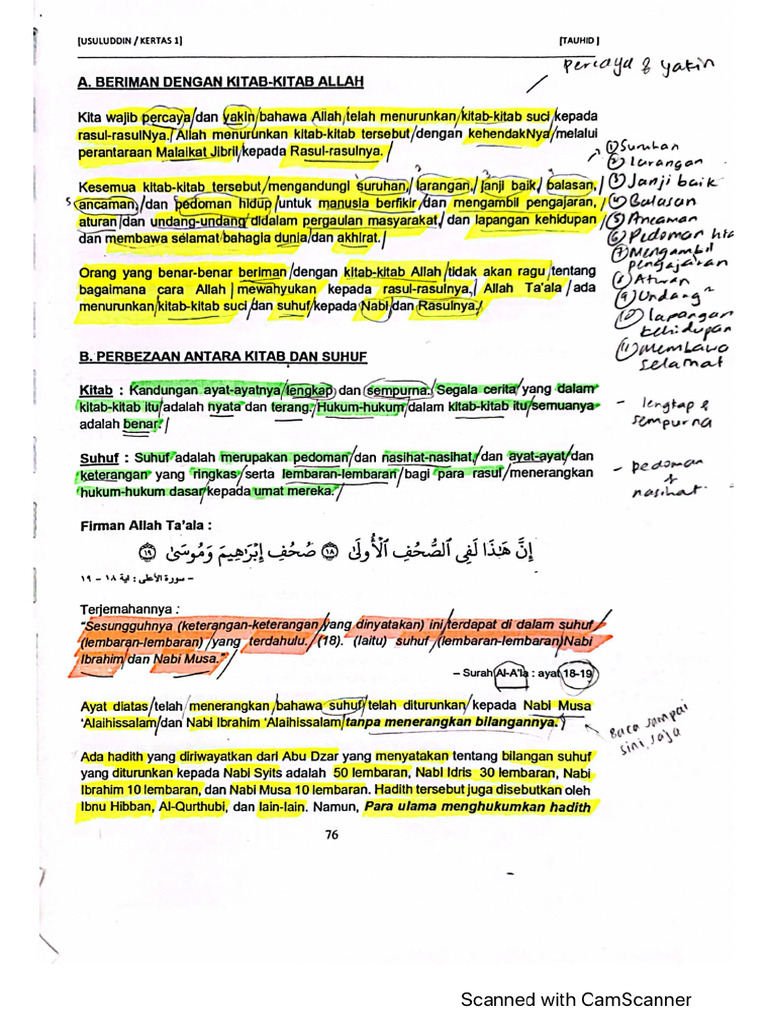 [USULUDDIN / KERTAS 1] [TAUHID ]
percaya & yakin
A. BERIMAN DENGAN KITAB-KITAB ALLAH
Kita wajib percaya dan yakin bahawa Allah telah menurunkan kitab-kitab suci kepada
rasul-rasulNya. Allah menurunkan kitab-kitab tersebut dengan kehendakNya melalui
perantaraan Malaikat Jibril kepada Rasul-rasulnya.
Kesemua kitab-kitab tersebut mengandungi suruhan, larangan, janji baik, balasan,
ancaman, dan pedoman hidup untuk manusia berfikir dan mengambil pengajaran,
aturan dan undang-undang didalam pergaulan masyarakat, dan lapangan kehidupan
dan membawa selamat bahagia dunia dan akhirat.
① Suruhan
② larangan
③ Janji baik
④ Balasan
⑤ Ancaman
⑥ Pedoman
⑦ Mengambil
pengajaran
⑧ Aturan
⑨ Undang²
⑩ lapangan
kehidupan
⑪ Membawa
selamat
Orang yang benar-benar beriman dengan kitab-kitab Allah tidak akan ragu tentang
bagaimana cara Allah mewahyukan kepada rasul-rasulnya. Allah Ta'ala ada
menurunkan kitab-kitab suci dan suhuf kepada Nabi dan Rasulnya.
B. PERBEZAAN ANTARA KITAB DAN SUHUF
Kitab : Kandungan ayat-ayatnya lengkap dan sempurna. Segala cerita yang dalam
kitab-kitab itu adalah nyata dan terang. Hukum-hukum dalam kitab-kitab itu semuanya
adalah benar.
- lengkap &
sempurna
Suhuf : Suhuf adalah merupakan pedoman dan nasihat-nasihat, dan ayat-ayat dan
keterangan yang ringkas serta lembaran-lembaran bagi para rasul menerangkan
hukum-hukum dasar kepada umat mereka.
- pedoman
&
nasihat.
Firman Allah Ta'ala :
إِنَّ هَـٰذَا لَفِى ٱلصُّحُفِ ٱلْأُولَىٰ ﴿١٨﴾ صُحُفِ إِبْرَٰهِيمَ وَمُوسَىٰ ﴿١٩﴾
– سورة الأعلى : اية ١٨ – ١٩
Terjemahannya :
"Sesungguhnya (keterangan-keterangan yang dinyatakan) ini terdapat di dalam suhuf
(lembaran-lembaran) yang terdahulu. (18). (Iaitu) suhuf (lembaran-lembaran) Nabi
Ibrahim dan Nabi Musa."
– Surah Al-A'la : ayat 18-19
Ayat diatas telah menerangkan bahawa suhuf telah diturunkan kepada Nabi Musa
'Alaihissalam dan Nabi Ibrahim 'Alaihissalam tanpa menerangkan bilangannya.
Baca sampai
sini saja
Ada hadith yang diriwayatkan dari Abu Dzar yang menyatakan tentang bilangan suhuf
yang diturunkan kepada Nabi Syits adalah 50 lembaran, Nabi Idris 30 lembaran, Nabi
Ibrahim 10 lembaran, dan Nabi Musa 10 lembaran. Hadith tersebut juga disebutkan oleh
Ibnu Hibban, Al-Qurthubi, dan lain-lain. Namun, Para ulama menghukumkan hadith
76
Scanned with CamScanner